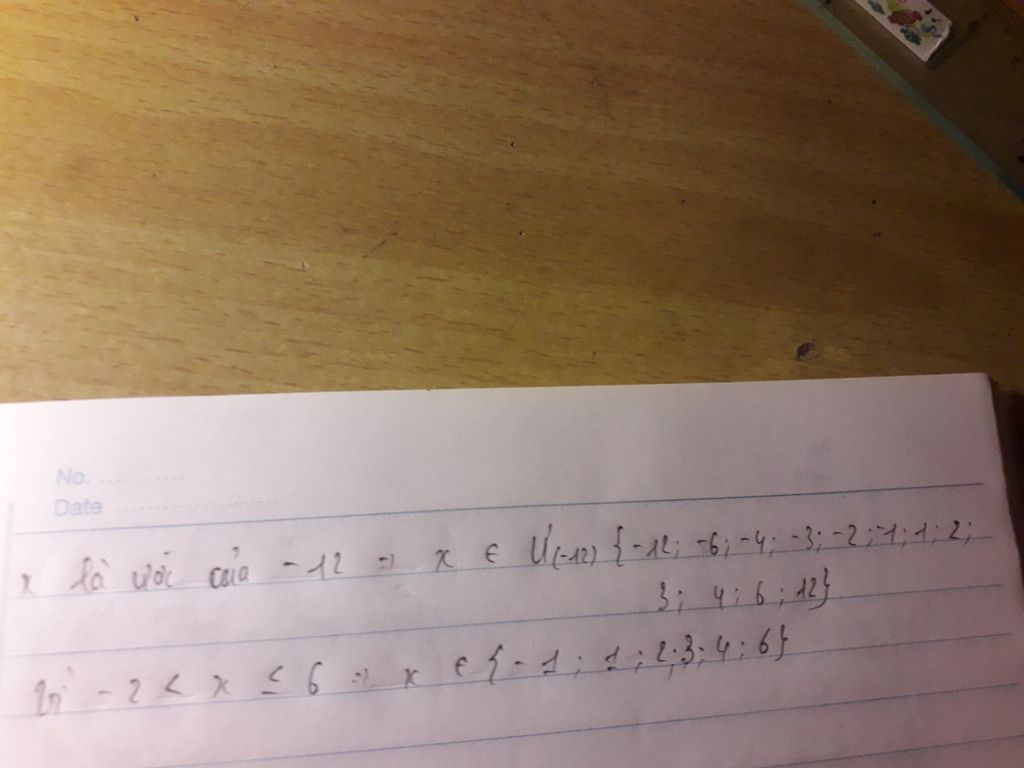 No. ...........
Date ......................
x là ước của -12 => x ∈ Ư(-12) {-12; -6; -4; -3; -2; -1; 1; 2;
3; 4; 6; 12}
Vì -2 < x ≤ 6 => x ∈ {-1; 1; 2; 3; 4; 6}